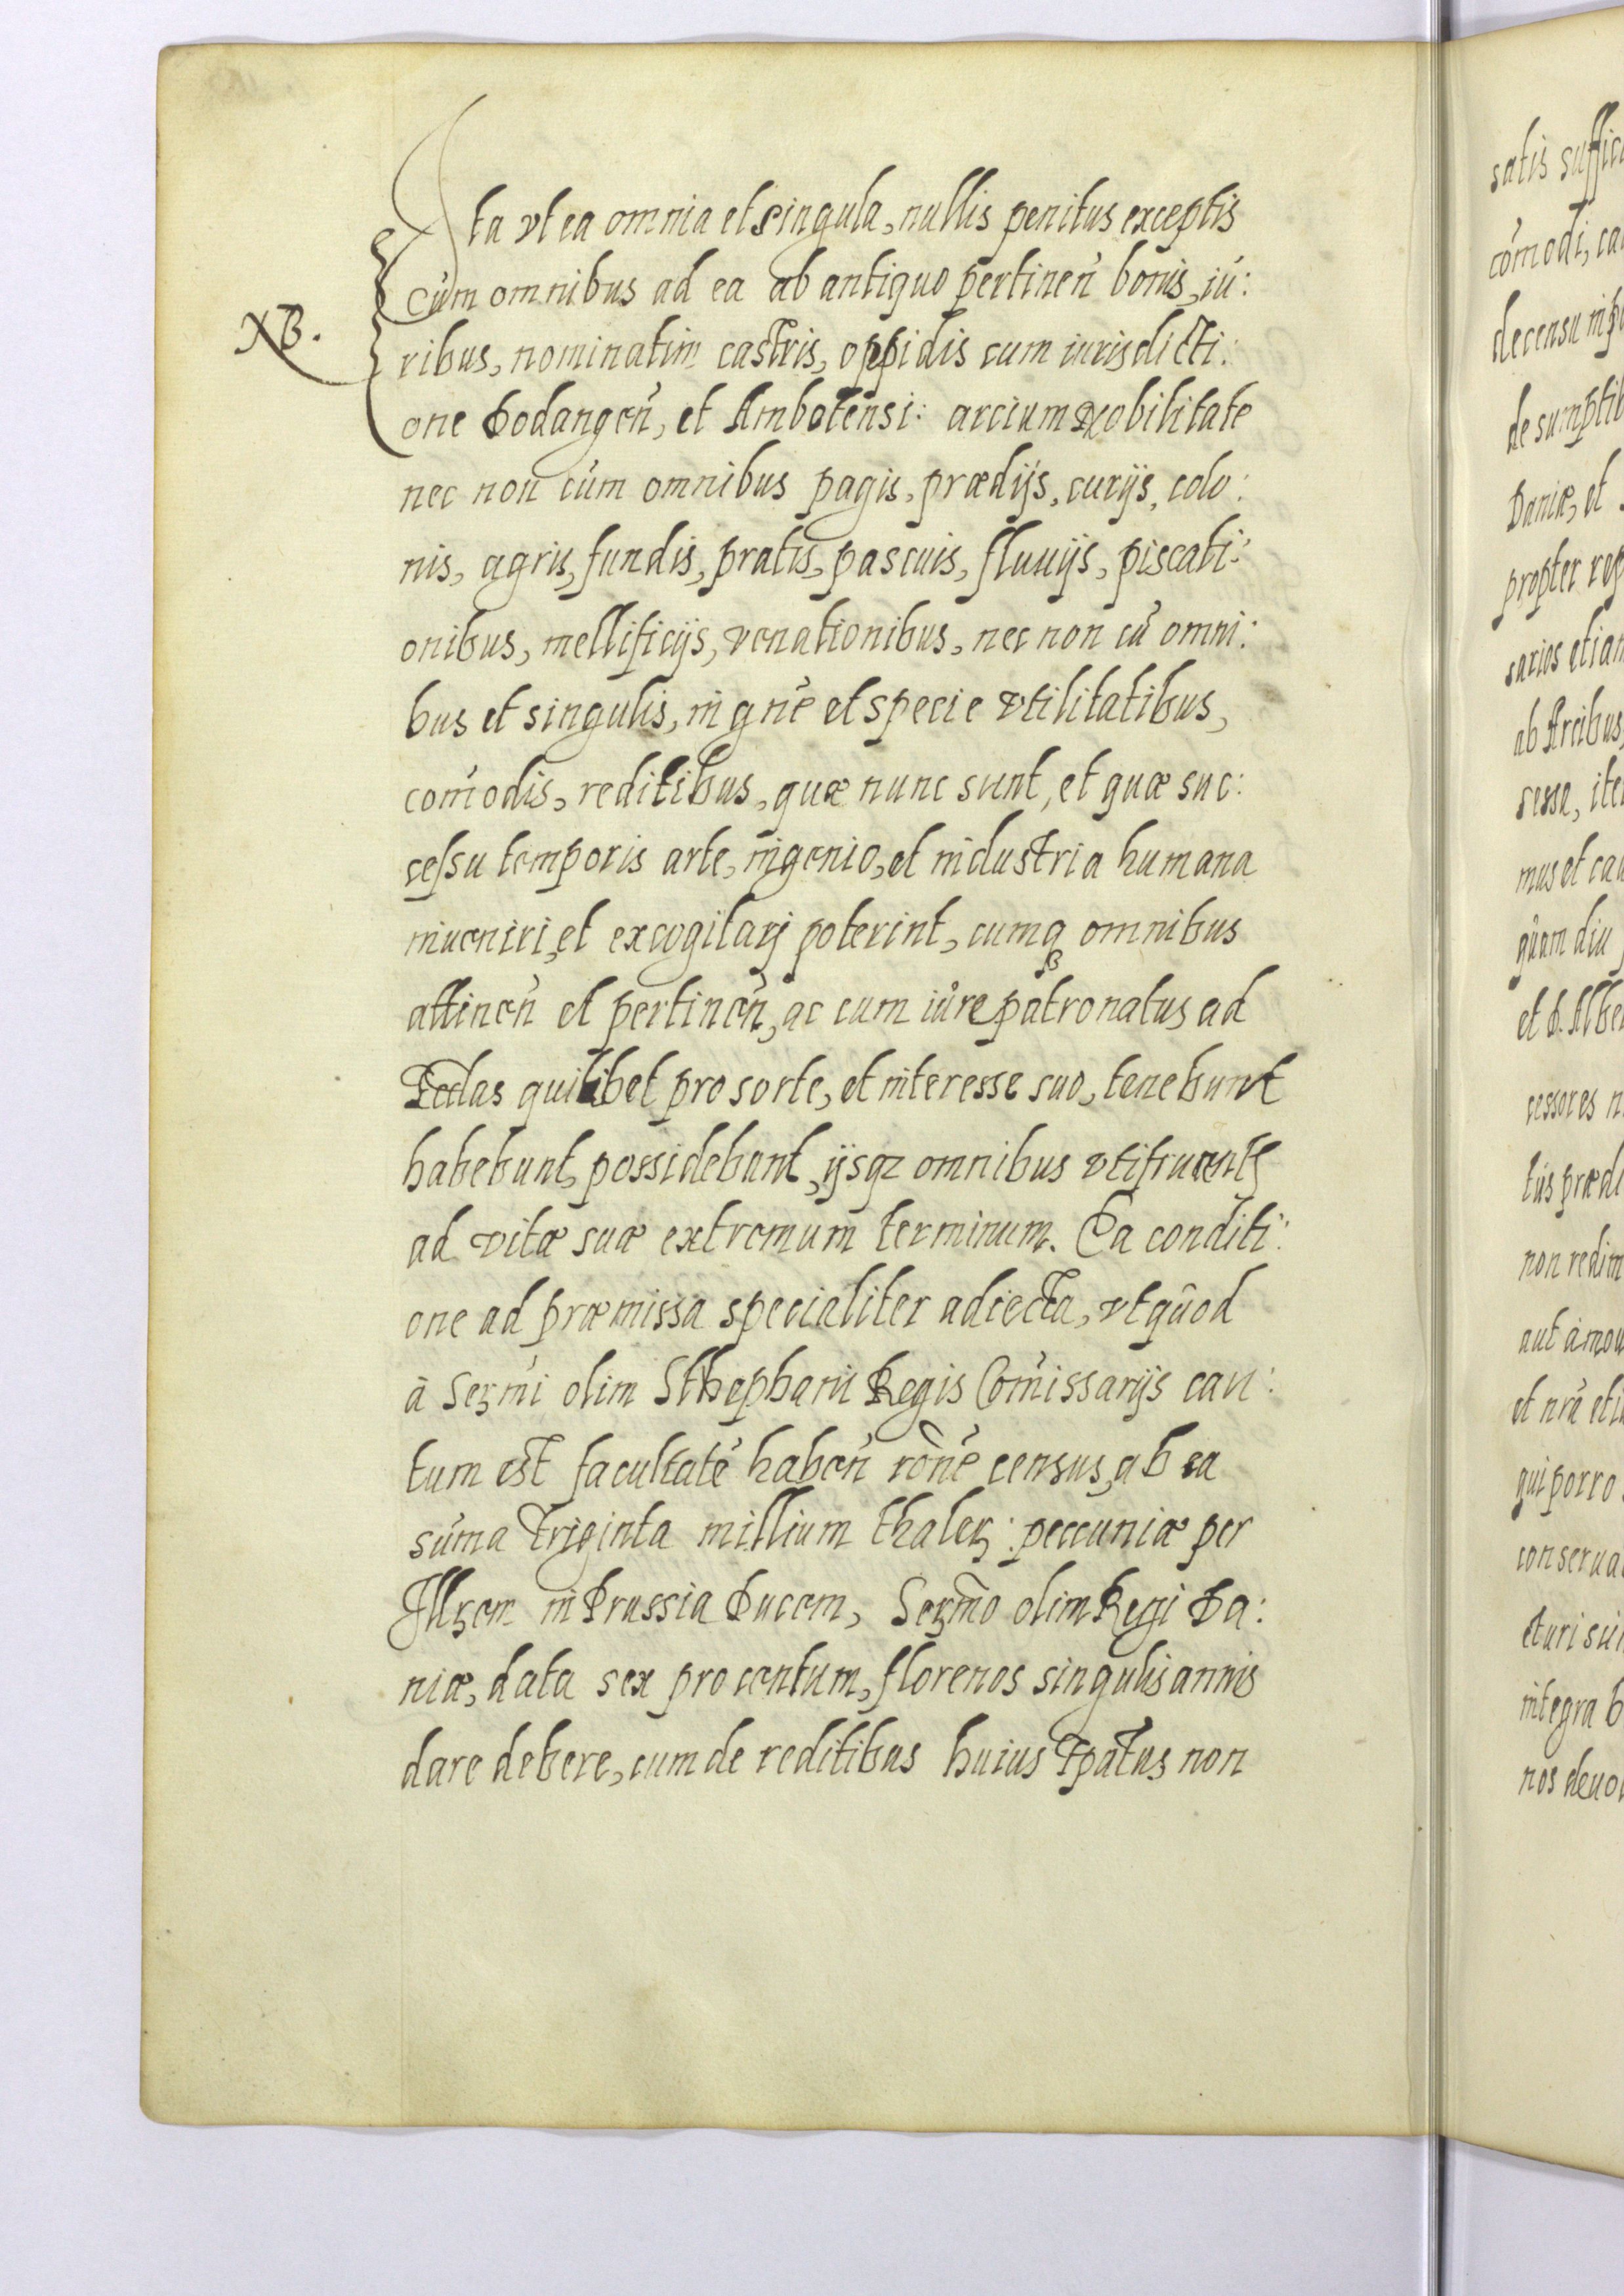 Ita vt ea omnia et singula, nullis penitus exceptis
NB.
cum omnibus ad ea ab antiquo pertineñ bonis, iu:
ribus, nominatim castris, oppidis cum iurisdicti:
one Dodangeñ, et Ambotensi: arcium Nobilitate
nec non cum omnibus pagis, prædijs, curijs, colo:
nis, agris, fundis, pratis, pascuis, fluuijs, piscati:
onibus, mellificijs, venationibus, nec non cũ omni:
bus et singulis, in gñe et specie vtilitatibus,
com̃odis, reditibus, quæ nunc sunt, et quæ suc:
cessu temporis arte, ingenio, et industria humana
inueniri, et excogitarj poterint, cumq₃ omnibus
attineñ et pertineñ, ac cum iure patronatus ad
Eccl̃as quilibet pro sorte, et interesse suo, tenebunt
habebunt, possidebunt, ijsqz omnibus vtifruentr̃
ad vitæ suæ extremum terminum. Ea conditi:
one ad præmissa specialiter adiecta, vt quod
à Serm̃i olim Sthephani Regis Com̃issarijs cau:
tum est facultatẽ habeñ rõnẽ census, ab ea
sum̃a Triginta millium thaler: peccuniæ per
Illrem in Prussia Ducem, Serm̃o olim Regi Da:
niæ, data sex pro centum, florenos singulis annis
dare debere, cum de reditibus huius Ep̃atus non
satis suffici
com̃odi, ca
decensu
de sumptib
Daniæ, et
propter
sarios etiam
ab Arcibus,
sesse, ite
mus et cau
quam diu
et D. Albe
cessores n
tus prædi
non redim
aut amou
et nr̃a eti
qui porro
conserua
cturi sui
integra b
nos deuol